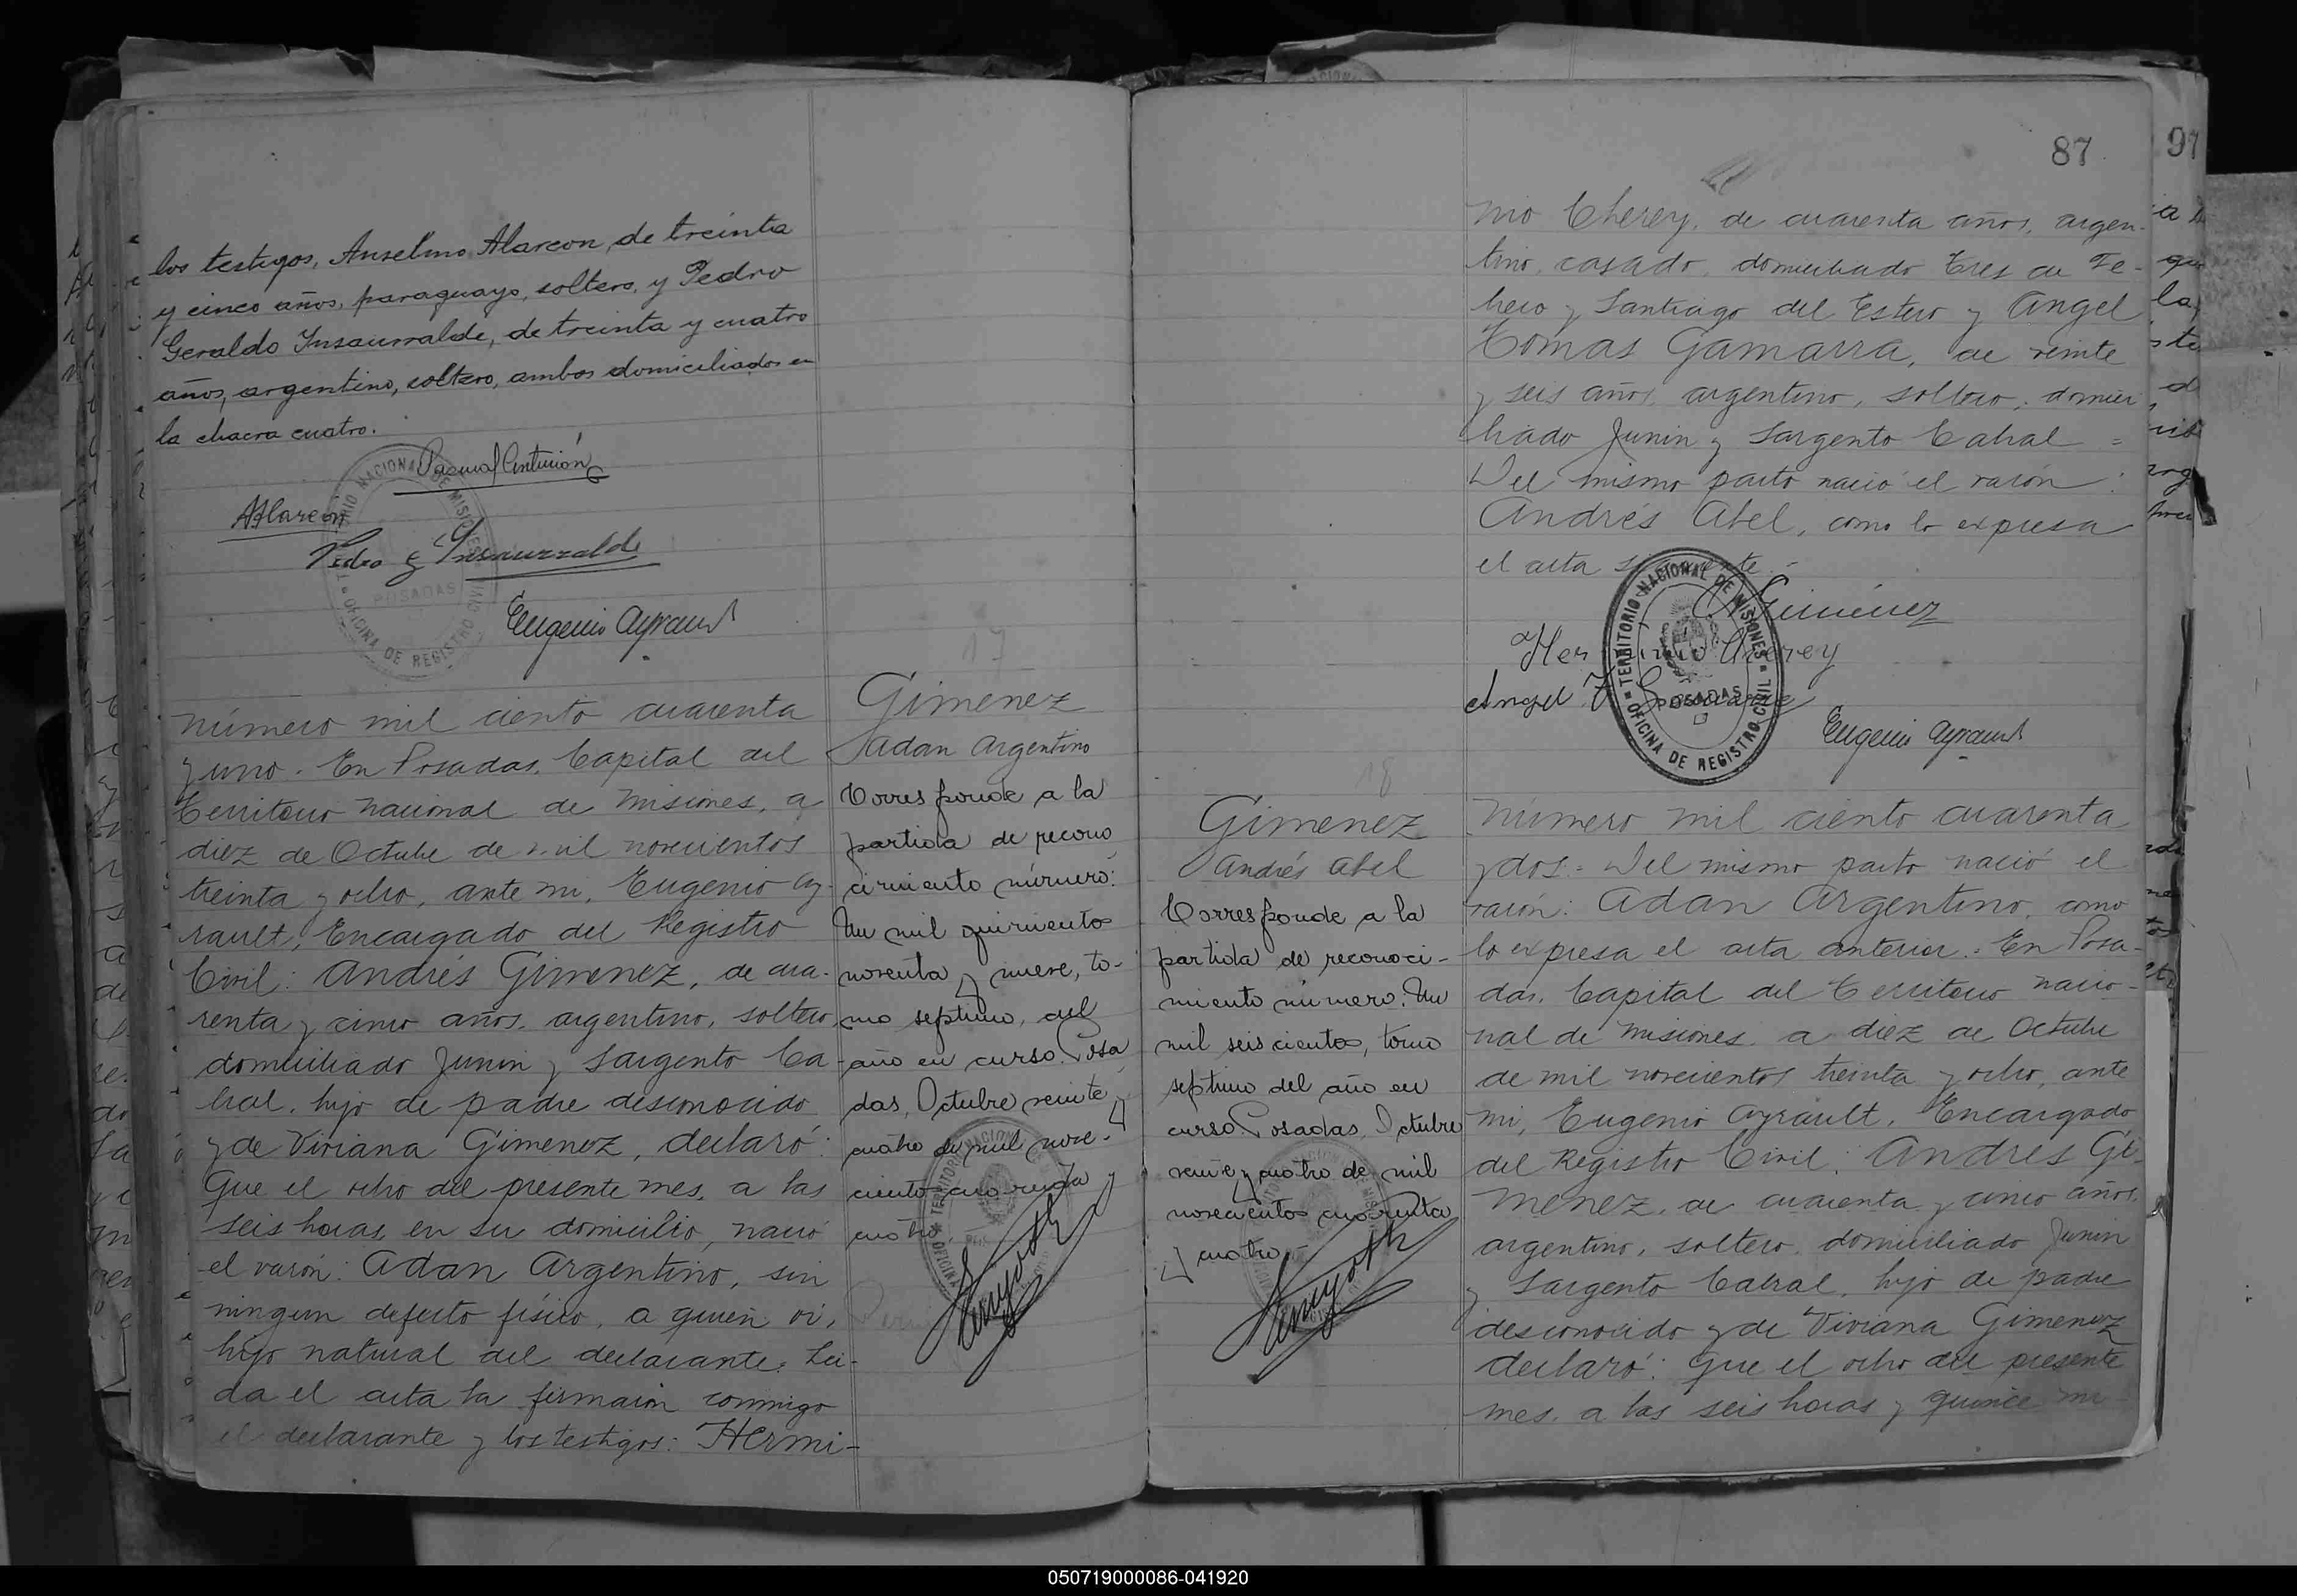 los testigos, Anselmo Alarcon, de treinta
y cinco años, paraguayo, soltero, y Pedro
Geraldo Insaurralde, de treinta y cuatro
años, argentino, soltero, ambos domiciliados en
la chacra cuatro.
Pascual Antunón
AAlarcón
Pedro G Insaurralde
TERRITORIO NACIONAL DE MISIONES
POSADAS
OFICINA DE REGISTRO CIVIL
Eugenio Ayrault
17
Número mil ciento cuarenta
y uno. En Posadas, Capital del
Territorio nacional de Misiones, a
diez de Octubre de mil novecientos
treinta y ocho, ante mi, Eugenio Ay-
rault, Encargado del Registro
Civil: Andrés Gimenez, de cua-
renta y cinco años, argentino, soltero,
domiciliado Junin y Sargento Ca-
bral, hijo de padre desconocido
y de Viviana Gimenez, declaró:
Que el ocho del presente mes, a las
seis horas, en su domicilio, nació
el varón: Adan Argentino, sin
ningun defecto físico, a quien vi,
hijo natural del declarante. Leí-
da el acta la firmaron conmigo
el declarante y los testigos: Hermi-
Gimenez
Adan Argentino
Corresponde a la
partida de recono
cimiento número:
Un mil quinientos
noventa y nueve, to-
mo septimo, del
año en curso. Posa
das, Octubre veinte y
cuatro de mil nove-
ciento cuarenta y
cuatro.
87
97
nio Cherey, de cuarenta años, argen-
tino, casado, domiciliado Tres de Fe-
brero y Santiago del Estero y Angel
Tomas Gamarra, de veinte
y seis años, argentino, soltero, domici
liado Junin y Sargento Cabral =
Del mismo parto nació el varón:
Andrés Abel, como lo expresa
el acta siguiente.-
A Giménez
Herminio Cherey
Angel T Gamarra
TERRITORIO NACIONAL DE MISIONES
POSADAS
OFICINA DE REGISTRO CIVIL
Eugenio Ayrault
18
Gimenez
Andrés Abel
Corresponde a la
partida de reconoci-
miento número: Un
mil seiscientos, tomo
septimo del año en
curso. Posadas, Octubre
veinte y cuatro de mil
novecientos cuarenta
y cuatro.
Número mil ciento cuarenta
y dos.= Del mismo parto nació el
varón: Adan Argentino, como
lo expresa el acta anterior.- En Posa-
das, Capital del Territorio nacio-
nal de Misiones, a diez de Octubre
de mil novecientos treinta y ocho, ante
mi, Eugenio Ayrault, Encargado
del Registro Civil: Andrés Gi-
menez, de cuarenta y cinco años,
argentino, soltero, domiciliado Junin
y Sargento Cabral, hijo de padre
desconocido y de Viviana Gimenez
declaró: Que el ocho del presente
mes, a las seis horas y quince mi
050719000086-041920